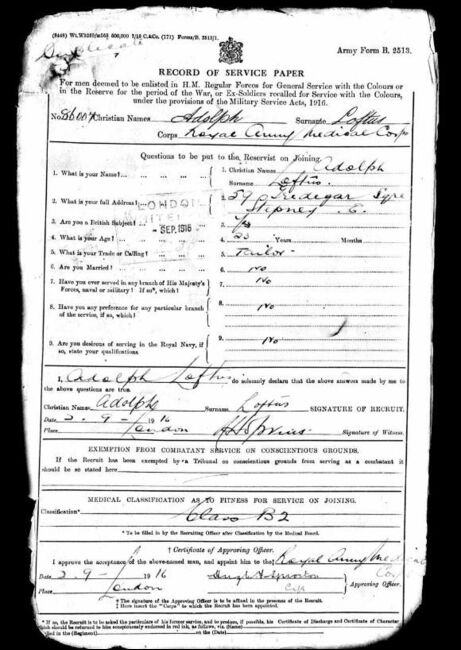 (8448) Wt.W3289/M565 500,000 7/16 C.&Co. (171) Forms/B. 2513/1
Duplicate
Army Form B. 2513.
RECORD OF SERVICE PAPER
For men deemed to be enlisted in H.M. Regular Forces for General Service with the Colours or
in the Reserve for the period of the War, or Ex-Soldiers recalled for Service with the Colours,
under the provisions of the Military Service Acts, 1916.
No. Christian Names Adolph Surname Loftus
Corps Royal Army Medical Corps
Questions to be put to the Reservist on Joining.
1. What is your Name? ... 1. Christian Name Adolph
Surname Loftus
2. What is your full Address? 2. 59 Tredegar Sqre
Stepney E.
LONDON
SEP. 1916
3. Are you a British Subject? 3. Yes
4. What is your Age? ... 4. 23 Years Months
5. What is your Trade or Calling? 5. Tailor
6. Are you Married? ... 6. No
7. Have you ever served in any branch of His Majesty's
Forces, naval or military? If so*, which? 7. No
8. Have you any preference for any particular branch
of the service, if so, which? 8. No
9. Are you desirous of serving in the Royal Navy, if
so, state your qualifications 9. No
I, Adolph Loftus do solemnly declare that the above answers made by me to
the above questions are true.
Christian Name Adolph Surname Loftus SIGNATURE OF RECRUIT.
Date 2 - 9 - 1916
Place London Signature of Witness.
EXEMPTION FROM COMBATANT SERVICE ON CONSCIENTIOUS GROUNDS.
If the Recruit has been exempted by a Tribunal on conscientious grounds from serving as a combatant it
should be so stated here
MEDICAL CLASSIFICATION AS TO FITNESS FOR SERVICE ON JOINING.
Classification* Class B2
* To be filled in by the Recruiting Officer after Classification by the Medical Board.
† Certificate of Approving Officer.
I approve the acceptance of the above-named man, and appoint him to the ‡ Royal Army Medical
Corps
Date 2 - 9 - 1916
Place London Capt Approving Officer.
† The signature of the Approving Officer is to be affixed in the presence of the Recruit.
‡ Here insert the "Corps" to which the Recruit has been appointed.
* If so, the Recruit is to be asked the particulars of his former service, and to produce, if possible, his Certificate of Discharge and Certificate of Character
which should be returned to him conspicuously endorsed in red ink, as follows, viz. (Name)